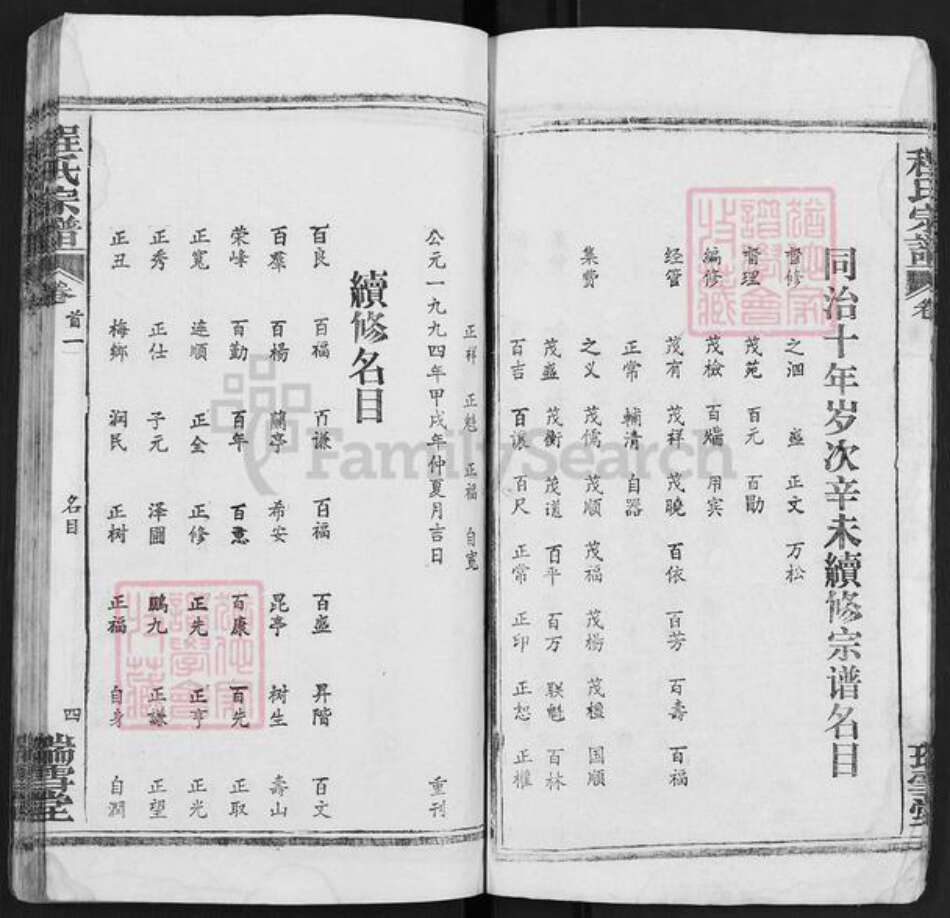 程氏宗譜 卷
同治十年岁次辛未續修宗谱名目
督修 之泗 盛 正文 万松
督理 茂苑 百元 百勛
編修 茂檢 百端 用宾
经管 茂有 茂祥 茂曉 百依 百芳 百壽 百福
正常 輔清 自器
集费 之义 茂儒 茂顺 茂福 茂楊 茂櫃 国顺
茂盛 茂衡 茂道 百平 百万 联魁 百林
百吉 百讓 百尺 正常 正印 正恕 正權
瑞雪堂
正祥 正魁 正福 自寬
公元一九九四年甲戌年仲夏月吉日 重刊
續修名目
百良 百福 百谦 百福 百盛 昇階 百文
百羣 百楊 蘭亭 希安 昆亭 树生 壽山
荣峰 百勤 百年 百惠 百康 百先 正取
正寬 连順 正全 正修 正先 正亨 正光
正秀 正仕 子元 泽圃 鹏九 正謙 正望
正丑 梅鄉 润民 正树 正福 自身 自潤
程氏宗譜 卷首一 名目 四 瑞雪堂
FamilySearch